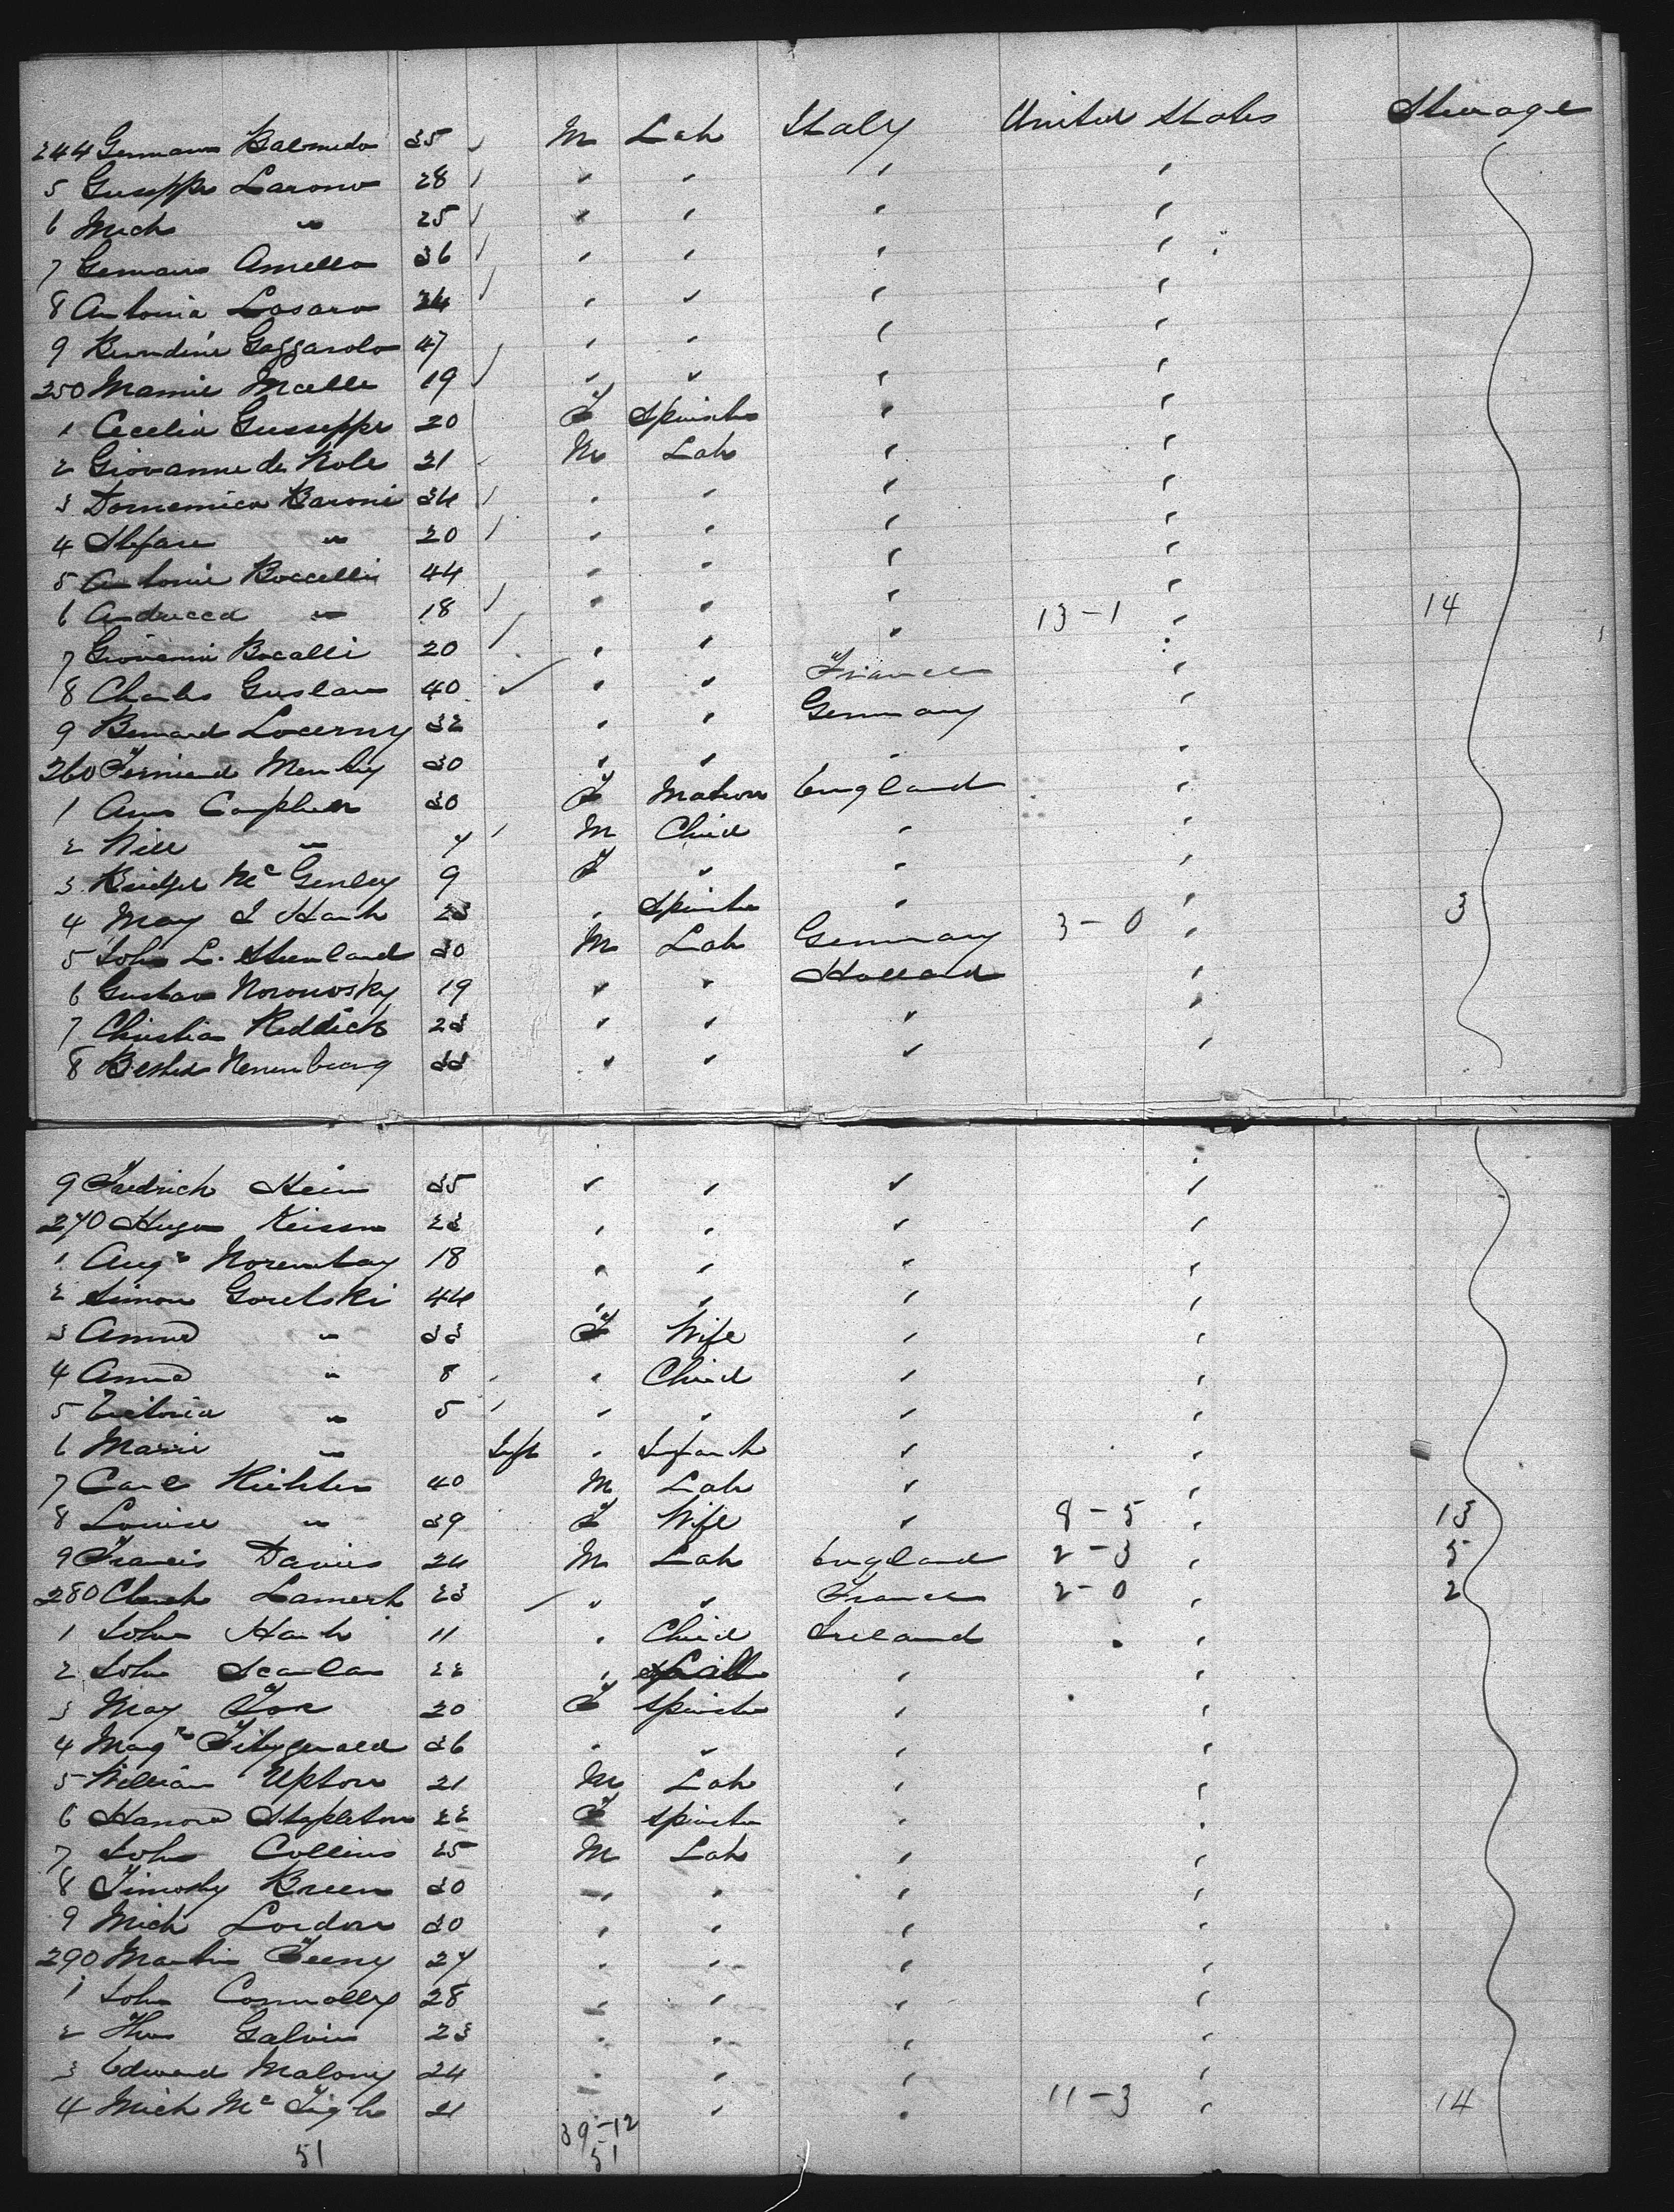 244 Germano Balomedo 35 M Lab Italy United States Steerage
5 Guseppe Larono 28 " " " "
6 Mich " 25 " " " "
7 Gemaro Amello 36 " " " "
8 Antonia Lasaro 24 " " " "
9 Gazzarolo 47 " " " "
250 Mamie 19 " " " "
1 Cecelia Gusseppe 20 F Spinster " "
2 Giovanne de Nole 21 M Lab " "
3 Domenico Baroni 34 " " " "
4 Stefan " 20 " " " "
5 Antonie Boccelli 44 " " " "
6 " 18 " " " 13-1 " 14
7 Giovanni Bocalli 20 " " " "
8 Charles Guslan 40 " " France "
9 Bernard Locerny 32 " " Germany "
260 Menky 30 " " " "
1 Ann 30 F Matron England "
2 Will " 7 M Child " "
3 Bridget Mc Genley 9 F " " "
4 May 23 " Spinster " 3-0 " 3
5 John L. Steenland 30 M Lab Germany "
6 Gustav Noronosky 19 " " Holland "
7 Christian Reddick 23 " " " "
8 33 " " " "
9 Fredrich Hein 35 " " " "
270 Hugo 23 " " " "
1 Aug 18 " " " "
2 Simon Gorelski 44 " " " "
3 Anna " 33 F Wife " "
4 Anna " 8 " Child " "
5 Victoria " 5 " " " "
6 Marie " Inft " Infant " "
7 Carl Richter 40 M Lab " "
8 Louise " 39 F Wife " 8-5 " 13
9 Francis Davies 24 M Lab England 2-3 " 5
280 Lamert 23 " " France 2-0 " 2
1 John 11 " Child Ireland "
2 John Scanlan 22 " " "
3 May Fox 20 F Spinster " "
4 Mag Fitzgerald 36 " " " "
5 William Upton 21 M Lab " "
6 Hanora Stapleton 22 F Spinster " "
7 John Collins 25 M Lab " "
8 Timothy Breen 30 " " " "
9 Mich Lordon 30 " " " "
290 Martin Feeny 27 " " " "
1 John Connolly 28 " " " "
2 Thos Galvin 23 " " " "
3 Edward Malony 24 " " " "
4 Mich Mc Tigh 21 " " " 11-3 " 14
39-12
51 51